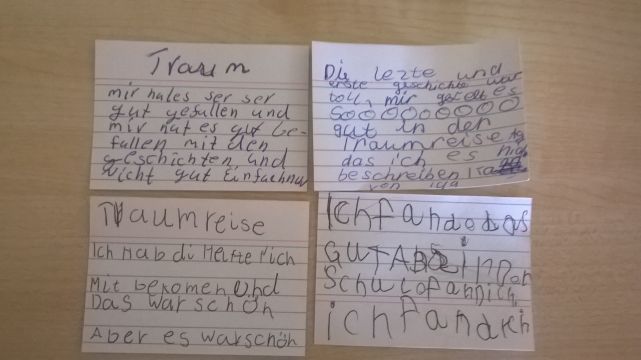 Traum
mir hales ser ser
gut gefallen und
mir hat es gut be-
fallen mit den
geschichten und
nicht gut Einfachnur
Die lezte und
erste geschichte war
toll, mir gefelt es
Soooooooooo
gut in der
Traumreise
das ich es nich
beschreiben
Traumreise
Ich Hab di Helfte nich
Mit bekomen und
Das war schön
Aber es warschön
Ich fand das
GUT AB in der
Schule fand ich
ich fand